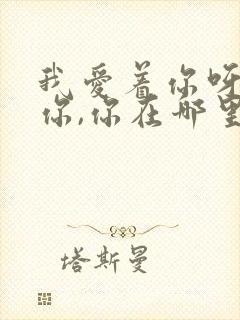 我爱着你呀
你,你在哪里
塔斯曼